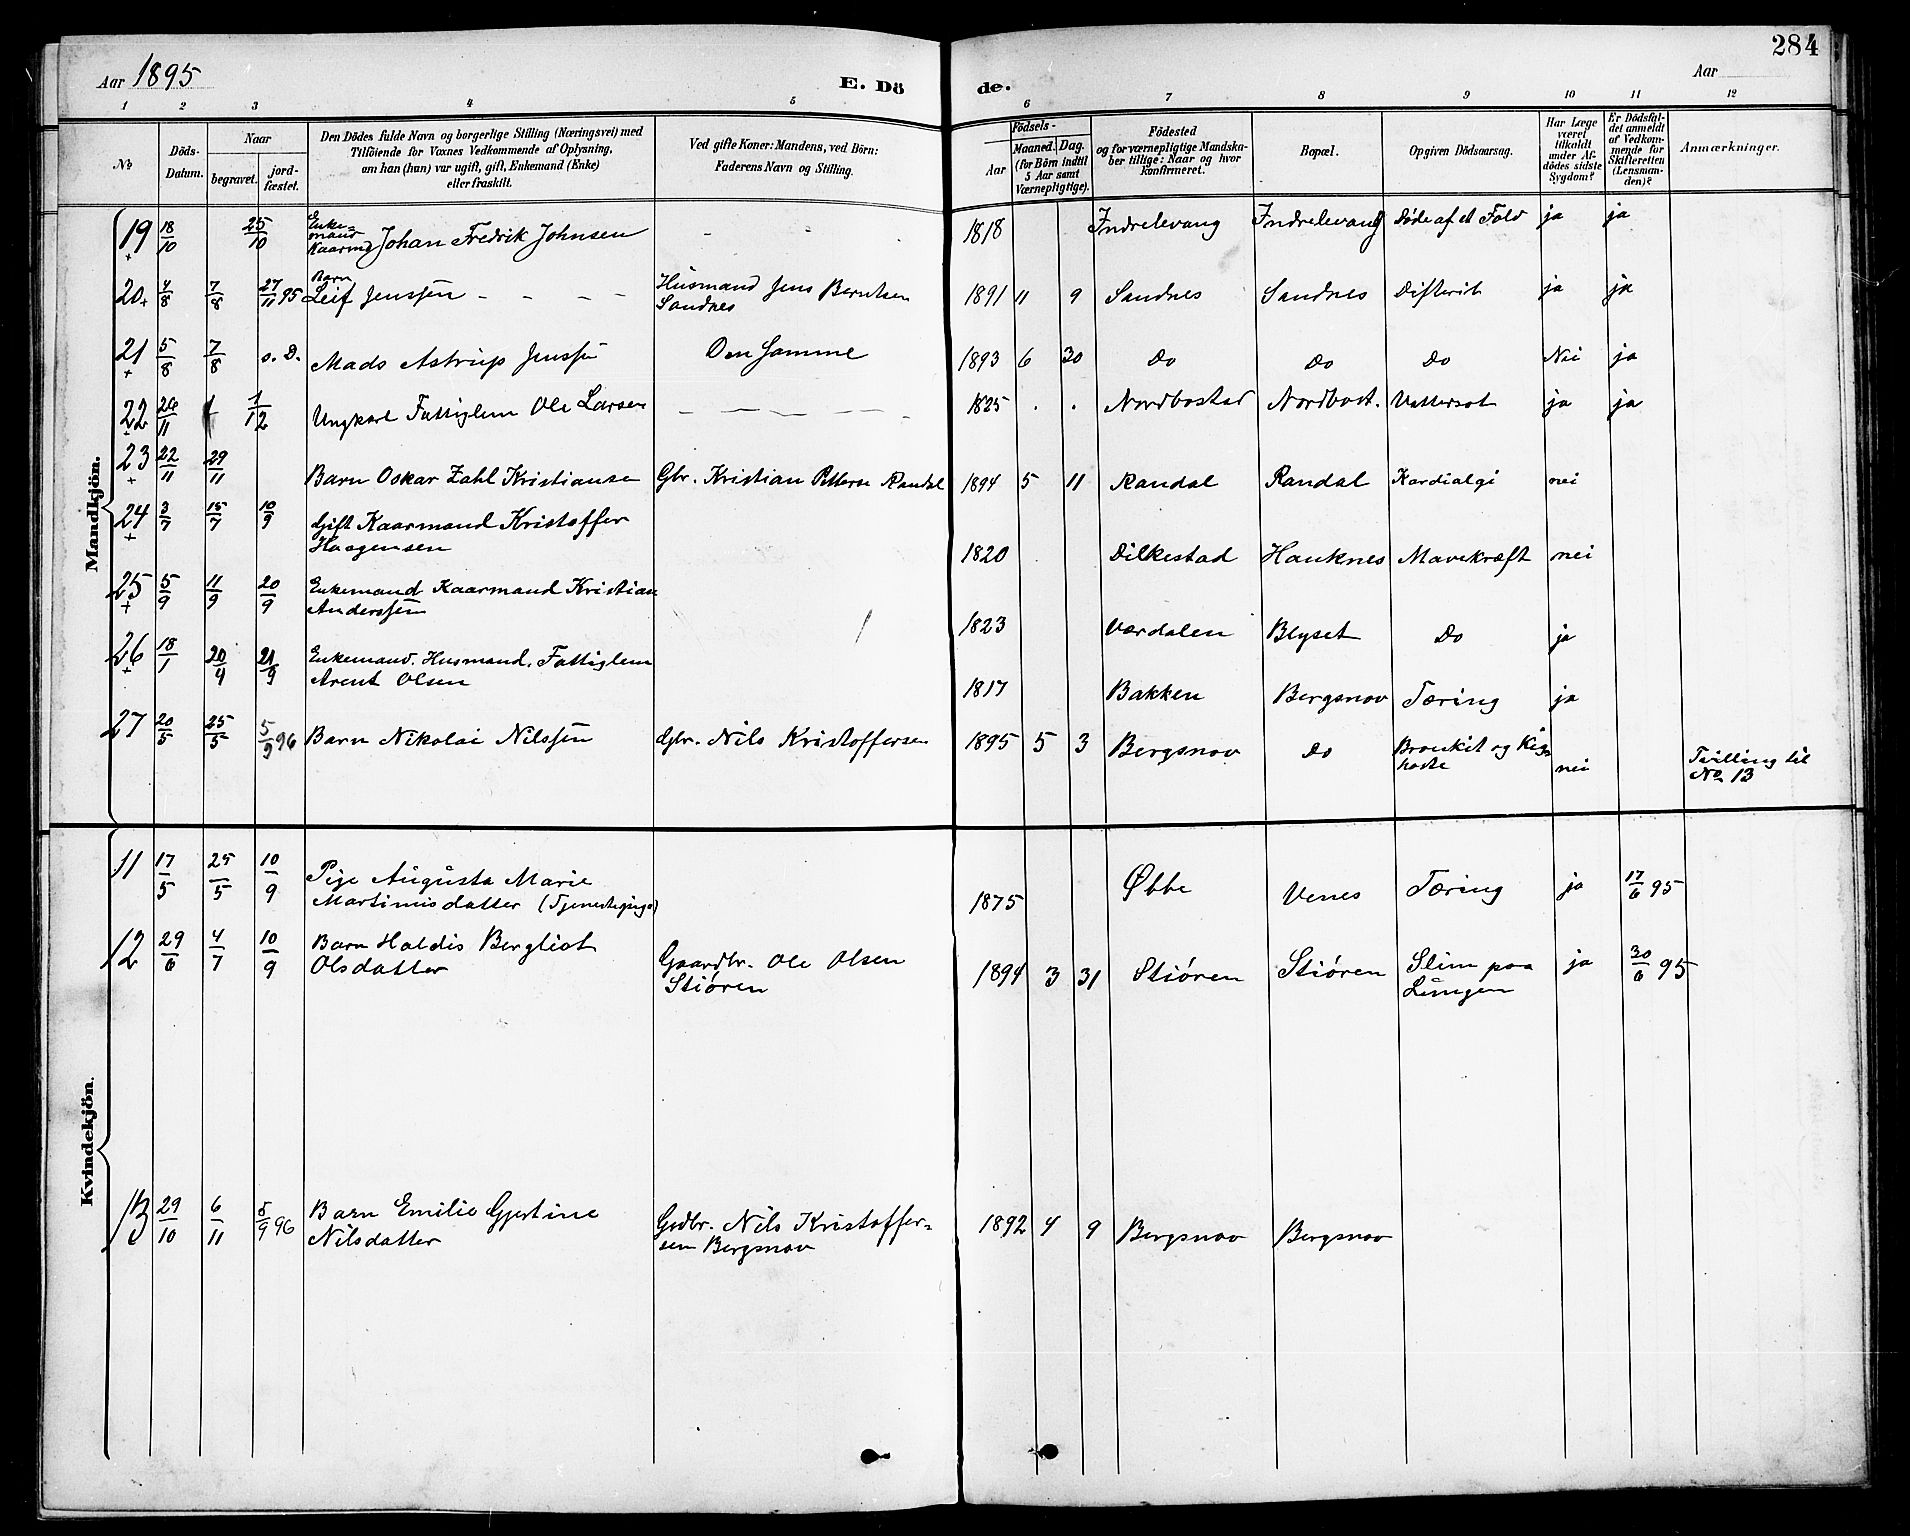 284
Aar 1895
E. Dö
de.
Aar
1 2 3 4 5 6 7 8 9 10 11 12
No
Döds-Datum.
Naar
begravet.
jord-fæstet.
Den Dödes fulde Navn og borgerlige Stilling (Næringsvei) med
Tilföiende for Voxnes Vedkommende af Oplysning,
om han (hun) var ugift, gift, Enkemand (Enke)
eller fraskilt.
Ved gifte Koner: Mandens, ved Börn:
Faderens Navn og Stilling.
Födsels-
Aar
Maaned. Dag.
(for Börn indtil
5 Aar samt
Værnepligtige).
Födested
og for værnepligtige Mandska-
ber tillige: Naar og hvor
konfirmeret.
Bopæl.
Opgiven Dödsaarsag.
Har Læge
været
tilkaldt
under Af-
dödes sidste
Sygdom?
Er Dödsfal-
det anmeldt
af Vedkom-
mende for
Skifteretten
(Lensman-
den)?
Anmærkninger.
Mandkjön.
19 + 18/10 25/10 Enke-mand Kaarmd Johan Fredrik Johnsen - - - 1818 Indrelevang Indrelevang Döde af et Fald ja ja
20 + 4/8 7/8 27/11 95 Barn Leif Jenssen - - - - Husmand Jens Berntsen Sandnes 1891 11 9 Sandnes Sandnes Difterit ja ja
21 + 5/8 7/8 s. D. Mads Astrup Jenssen Den Samme 1893 6 30 Do Do Do Nei ja
22 + 26/11 1/12 Ungkarl Fattiglem Ole Larsen 1825 . . Nordbostad Nordbost. Vattersot ja ja
23 + 22/11 29/11 Barn Oskar Zahl Kristiansen Gbr. Kristian Petterse Randal 1894 5 11 Randal Randal Kardialgi nei
24 + 3/7 15/7 10/9 Gift Kaarmand Kristoffer
Haagensen 1820 . Dilkestad Hauknes Mavekræft nei
25 + 5/9 11/9 20/9 Enkemand Kaarmand Kristian
Anderssen 1823 Værdalen Blyset Do ja
26 + 18/1 20/4 21/9 Enkemand. Husmand. Fattiglem
Arent Olsen 1817 Bakken Bergsnov Tæring ja
27 20/5 25/5 5/9 96 Barn Nikolai Nilssen Gbr. Nils Kristoffersen 1895 5 3 Bergsnov Do Bronkit og Kig-
hoste nei Tvilling til
No 13
Kvindekjön.
11 17/5 25/5 10/9 Pige Augusta Marie
Martinusdatter (Tjenestepige) 1875 Øbbe Venes Tæring ja 17/6 95
12 29/6 4/7 10/9 Barn Haldis Bergliot
Olsdatter Gaardbr. Ole Olsen
Stiøren 1894 3 31 Stiøren Stiøren Slim paa
Lungen ja 30/6 95
13 29/10 6/11 5/9 96 Barn Emilie Gjertine
Nilsdatter Grdbr. Nils Kristoffer-
sen Bergsnov 1892 4 9 Bergsnov Bergsnov